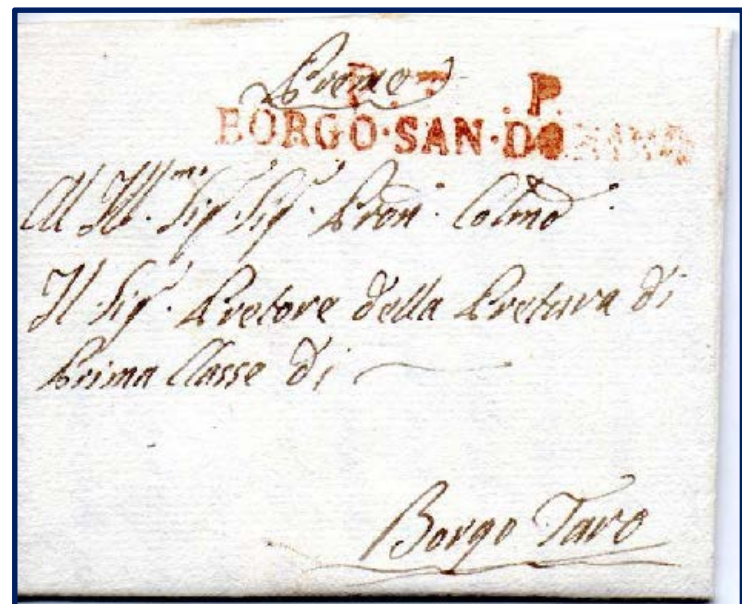 Preme
P.
BORGO·SAN·DONNINO
Al Ill.mo Sig.r Sig.r Pron. Colmo
Il Sig.r Pretore della Pretura di
Prima Classe di
Borgo Taro